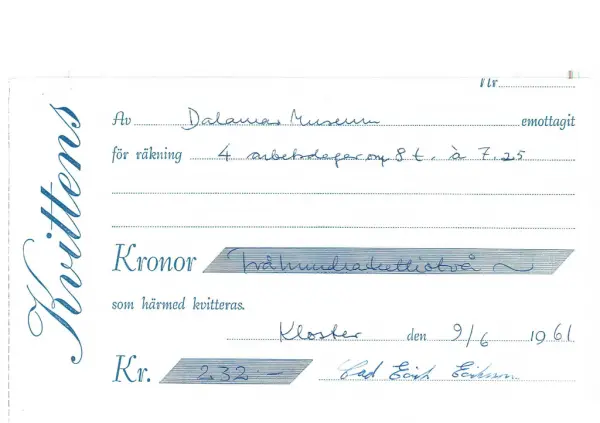 Kvittens
Nr
Av Dalarnas Museum emottagit
för räkning 4 arbetsdagar om 8 t. à 7.25
Kronor Tvåhundratrettiotvå
som härmed kvitteras.
Kloster den 9/6 1961
Kr. 232.-
Erik Eriksson